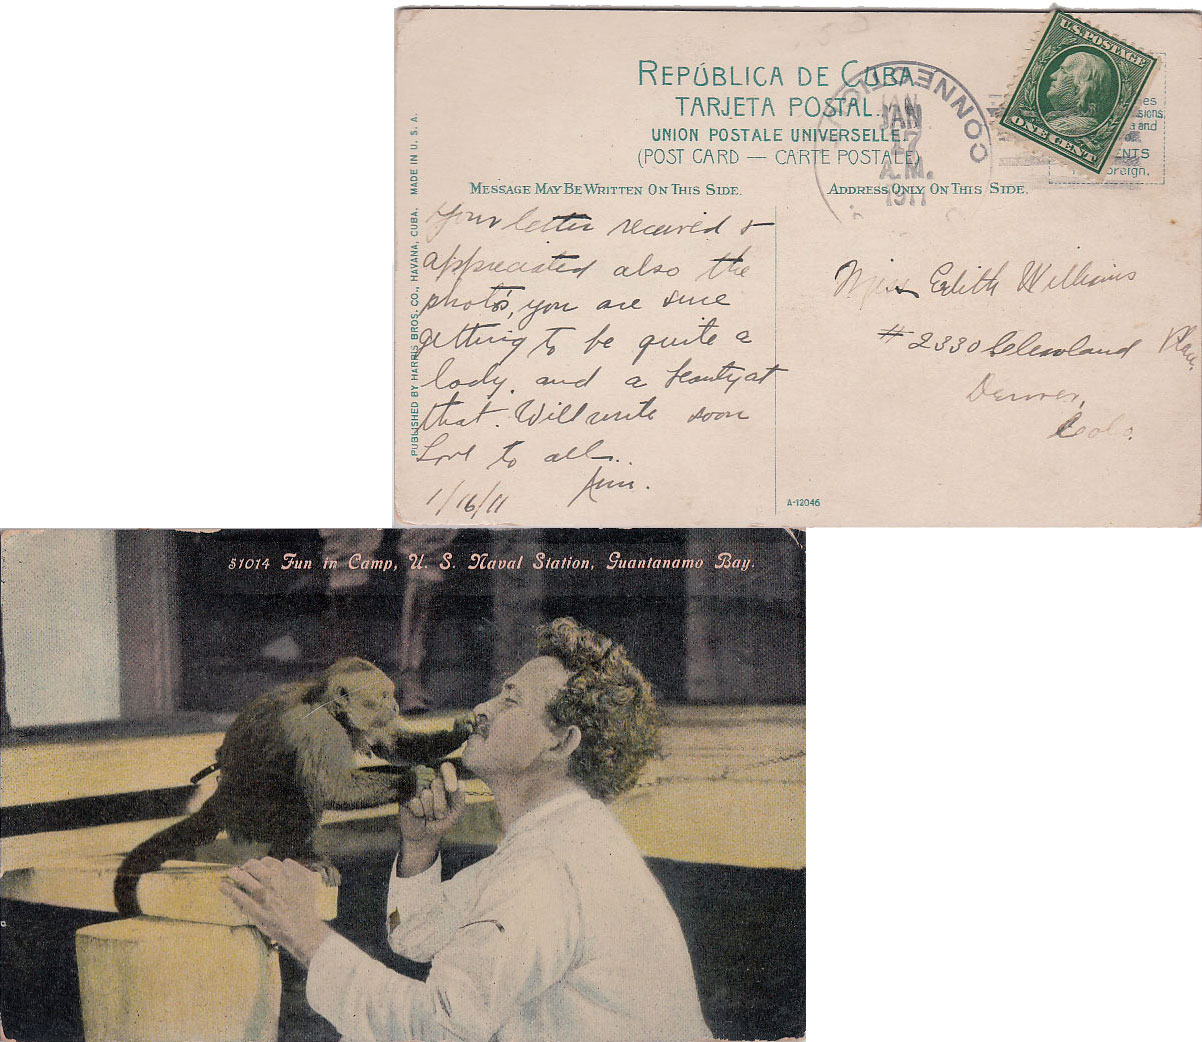 REPÚBLICA DE CUBA.
TARJETA POSTAL.
UNION POSTALE UNIVERSELLE.
(POST CARD — CARTE POSTALE)
MESSAGE MAY BE WRITTEN ON THIS SIDE.
ADDRESS ONLY ON THIS SIDE.
U.S. POSTAGE
ONE CENT
CONNECTICUT
JAN
17
A.M.
1911
PUBLISHED BY HARRIS BROS. CO., HAVANA, CUBA. MADE IN U. S. A.
Your letter received &
appreciated also the
photo's, you are sure
getting to be quite a
lady. and a beauty at
that. Will write soon
Love to all.
1/16/11
Miss Edith Williams
# 2330 Cleveland Place
Denver,
Colo.
A-12046
51014 Fun in Camp, U. S. Naval Station, Guantanamo Bay.